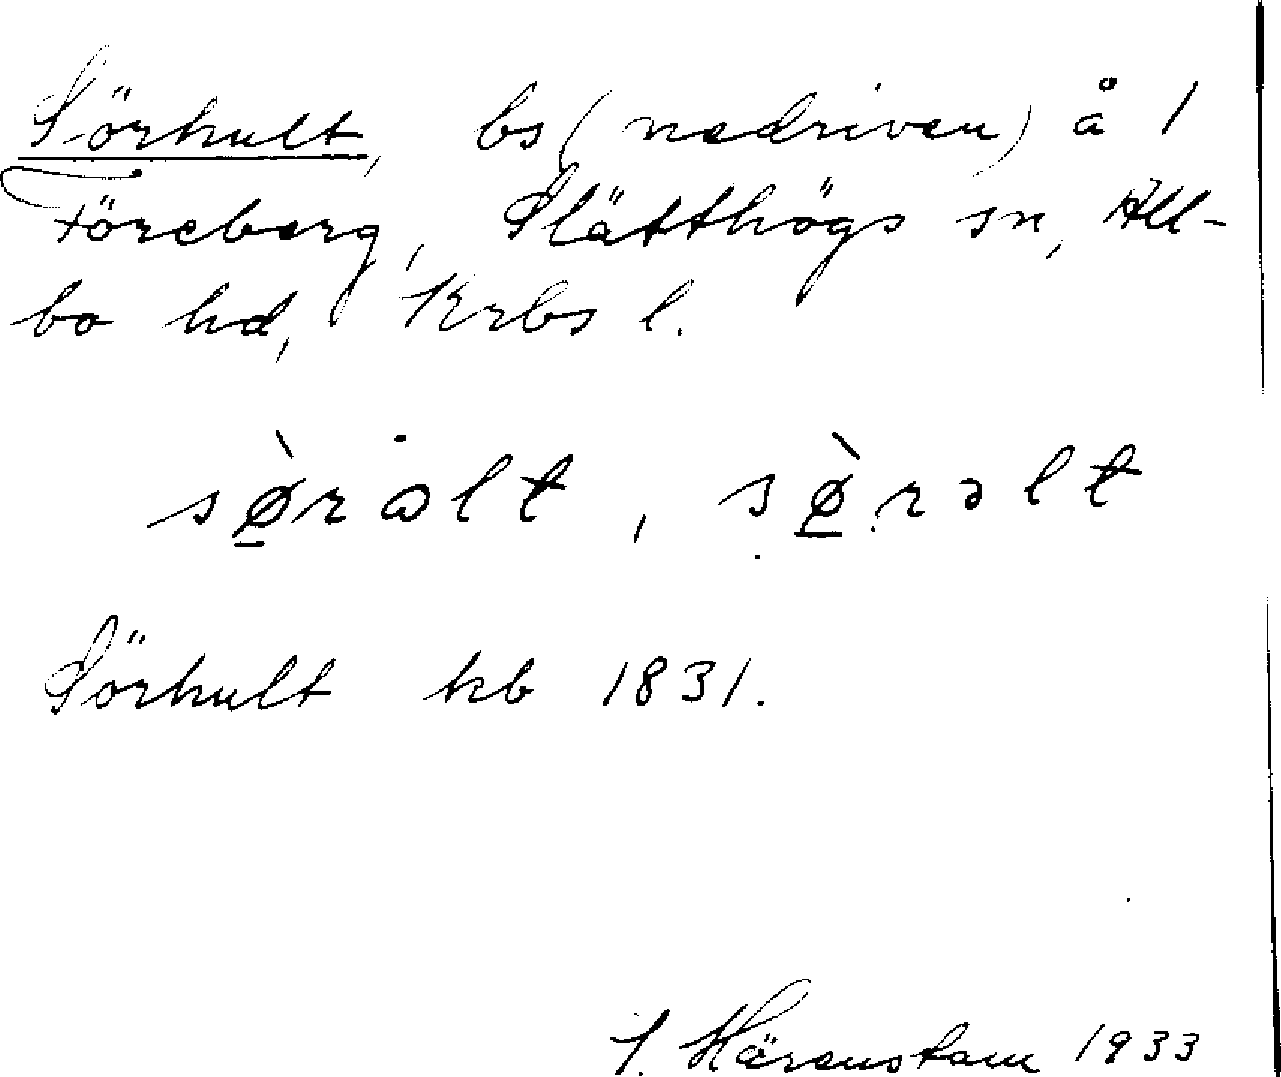 Sörhult, bs (nedriven) å 1
Föreberg, Slätthögs sn, All-
bo hd, Krbs l.
sø̀rəlt, sø̀rəlt
Sörhult kb 1831.
J. Härenstam 1933